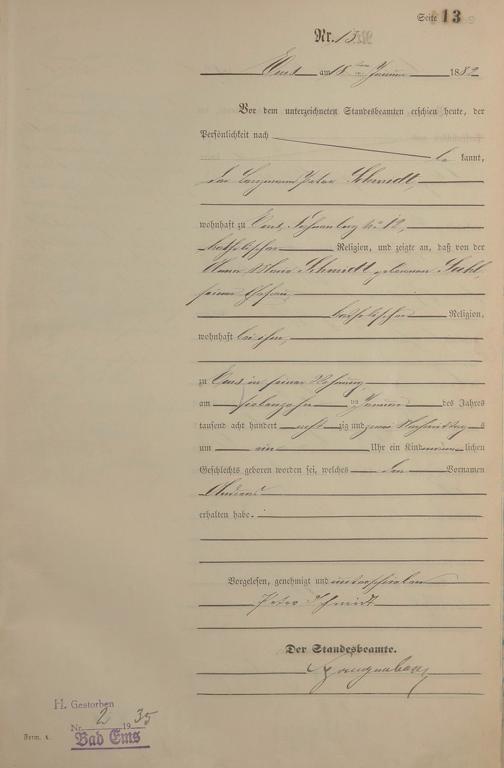 Seite 13
Nr. 13
Ems am 18 ten Januar 1882
Vor dem unterzeichneten Standesbeamten erschien heute, der
Persönlichkeit nach
be kannt,
der Peter Schmidt,
wohnhaft zu Ems, No 12,
katholischer Religion, und zeigte an, daß von der
Anna Maria Schmidt geborenen
seiner Ehefrau,
katholischer Religion,
wohnhaft bei ihm,
zu Ems in seiner Wohnung
am siebenzehn ten Januar des Jahres
tausend acht hundert acht zig und zwei Nachmittag s
um ein Uhr ein Kind männ lichen
Geschlechts geboren worden sei, welches den Vornamen
erhalten habe.
Vorgelesen, genehmigt und unterschrieben
Peter Schmidt
Der Standesbeamte.
H. Gestorben
Nr. 2 1935
Bad Ems
Form.